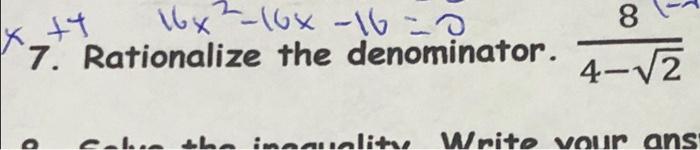 x +4 16x²-16x-16=0
7. Rationalize the denominator. 8/(4-√2)
Solve the inequality. Write your ans